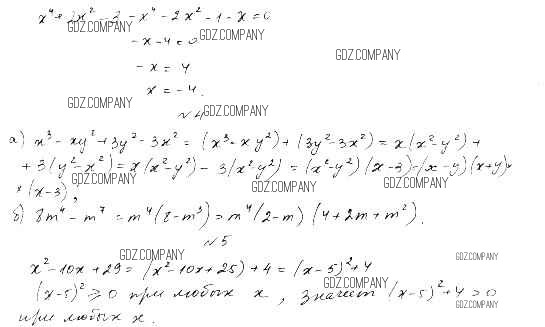 x⁴ + 2x² - 3 - x⁴ - 2x² - 1 - x = 0
GDZ.COMPANY
-x - 4 = 0
GDZ.COMPANY
GDZ.COMPANY
-x = 4
x = -4.
GDZ.COMPANY
№4
GDZ.COMPANY
а) x³ - xy² + 3y² - 3x² = (x³ - xy²) + (3y² - 3x²) = x(x² - y²) +
+ 3(y² - x²) = x(x² - y²) - 3(x² - y²) = (x² - y²)(x - 3) = (x - y)(x + y)×
× (x - 3);
GDZ.COMPANY
GDZ.COMPANY
GDZ.COMPANY
б) 8m⁴ - m⁷ = m⁴(8 - m³) = m⁴(2 - m)(4 + 2m + m²).
№5
GDZ.COMPANY
GDZ.COMPANY
x² - 10x + 29 = (x² - 10x + 25) + 4 = (x - 5)² + 4
GDZ.COMPANY
GDZ.COMPANY
(x - 5)² ≥ 0 при любых x, значит (x - 5)² + 4 > 0
GDZ.COMPANY
при любых x.